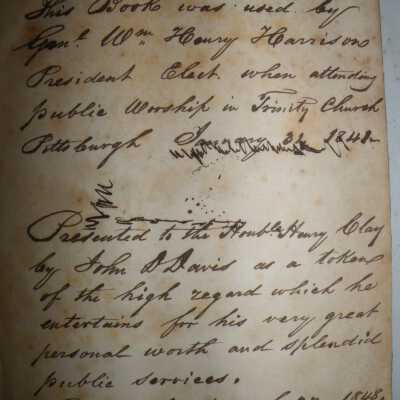 This Book was used by
Genl. Wm Henry Harrison
President Elect when attending
public Worship in Trinity Church
Pittsburgh
Presented to the Honble. Henry Clay
by John D Davis as a token
of the high regard which he
entertains for his very great
personal worth and splendid
public services.